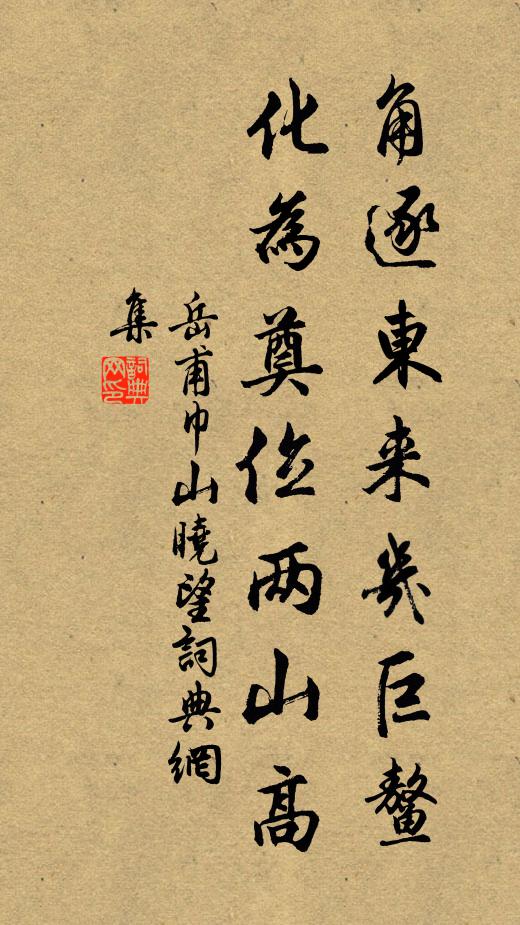 角逐東来幾巨鳌
化為奠位两山高
岳甫巾山曉望詞典網
集
詞典
网印